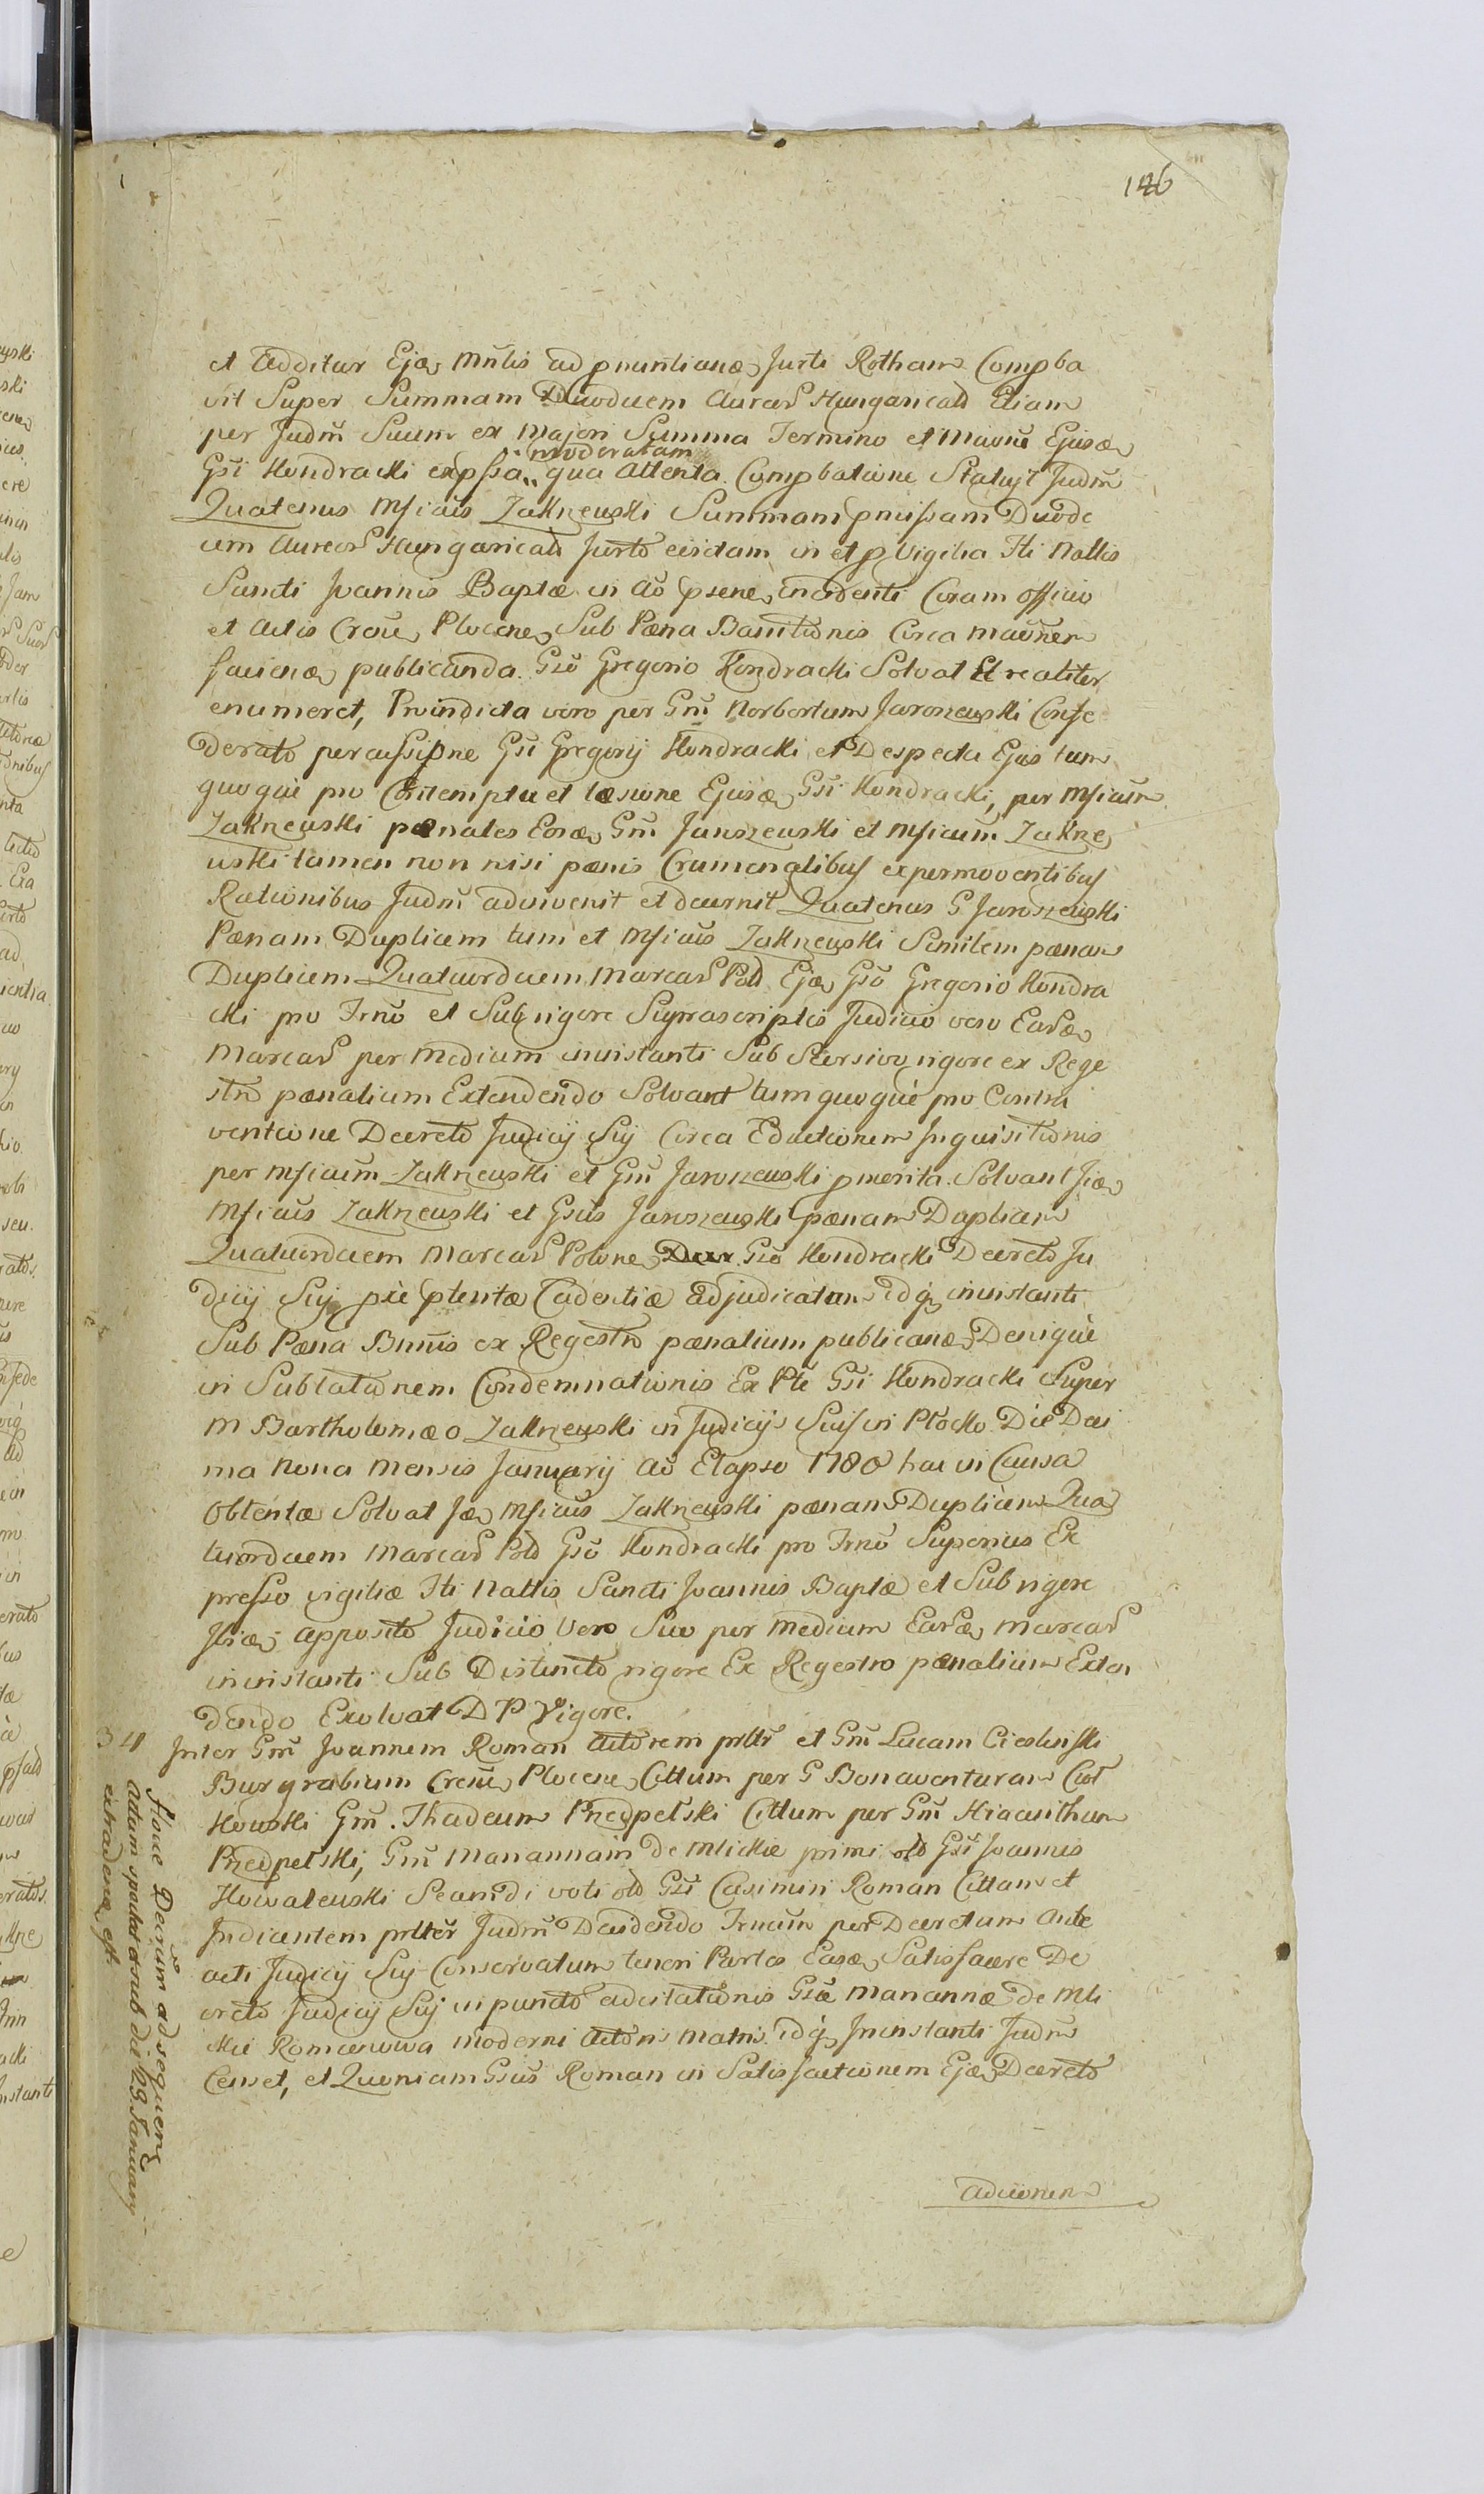 146
et Additur Ejæ Mñtis ad pnuntianæ Jurti Rotham Compba
vit Super Summam Duodecem Aureas Hungaricals Etiam
per Judm̃ Suum ex Majori Summa Termino et
moderatam
Gsi Kondracki expssa qua Attenta Compbatione Statujt Judm̃
Quatenus Mficus Zakrzewski Summam pmissam Duode
cim Aureos Hungaricals Jurto eisdem in et p Vigilia Fti Nattis
Sancti Joannis Baptæ in Ao psene incidenti Coram Officio
et Actis Plocene Sub Pæna Banitionis Circa
faciena publicanda. Gso Gregorio Kondracki Solvat Et realiter
enumeret, Provindicta vero per Gm̃ Norbertum Jaroszewski Confe
Derato percussione Gsi Gregorij Kondracki et Despectu Ejus tum
quoquè pro Contemptu et læsione Ejusæ Gsi Kondracki, per Mficum
Zakrzewski pænales Eosæ Gm̃ Jaroszewski et Mficum Zakrze
wski tamen non nisi pænis Crumenalibus ex permoventibus
Rationibus Judm̃ advivenit et decernit Quatenus G Jaroszewski
Pænam Duplicem tum et Mficus Zakrzewski Similem pænam
Duplicem Quatuordecem Marcas Pols Ejæ Gso Gregorio Kondra
cki pro Trno et Sub rigore Suprascriptis Judicio vero Easæ
Marcas per Medium ininstanti Sub rigore ex Rege
stro pænalium Extendendo Solvant tum quoquè pro Contra
ventione Decreto Judicij Sij Circa Eductionem Inquisitionis
per Mficum Zakrzewski et Gm̃ Jaroszewski pmerita. Solvant Jiæ
Mficus Zakrzewski et Gsus Jaroszewski pænam Duplicem
Quatuordecem Marcas Polone Gso Kondracki Decreto Ju
dicij Sij ptentæ Cadentiæ adjudicatam idq ininstanti
Sub Pæna Bnnis ex Regestro pænalium publicanæ Deniquè
in Sublationem Condemnationis Ex Pte Gsi Kondracki Super
M Bartholomæo Zakrzewski in Judicijs Suis in Płocko Die Deci
ma Nona Mensis Januarij Ao Elapso 1780 hac in Causa
Obtentæ Solvat Jæ Mficus Zakrzewski pænam Duplicem Qua
tuordecem Marcas Pols Gso Kondracki pro Trno Superius Ex
presso vigiliæ Fti Nattis Sancti Joannis Baptæ et Sub rigore
Ibiæ apposito Judicio Vero Suo per Medium Easæ Marcas
ininstanti Sub Distincto rigore Ex Regestro pænalium Exten
dendo Exolvat D P Vigore.
34 Inter Gm̃ Joannem Roman Actorem prltr et Gm̃ Lucam Cieslinski
Burgrabium Plocene Cittum per G Bonaventuram Ciot
kowski Gm̃. Thadeum Przedpełski Cittum per Gm̃ Hiacinthum
Przedpełski, Gm̃ Mariannam de Mlickie primi olo Gsi Joannis
Kowalewski Secundi voti olo Gsi Casimiri Roman Cittam et
Judicantem prltter Judm̃ Decidendo per Decretum Ante
acti Judicij Sij Conservatum teneri Partes Easæ Satisfacere De
creto Judicij Sij in puncto adcitationis Gsæ Mariannæ de Mli
ckie Romanowa moderni Actoris Matris idq Ininstanti Judm̃
Censet, et Quoniam Gsus Roman in Satisfactionem Ejæ Decreto
adcionem
Hocce Decrum adsequens
Actum die 29 January
extradenæ est.